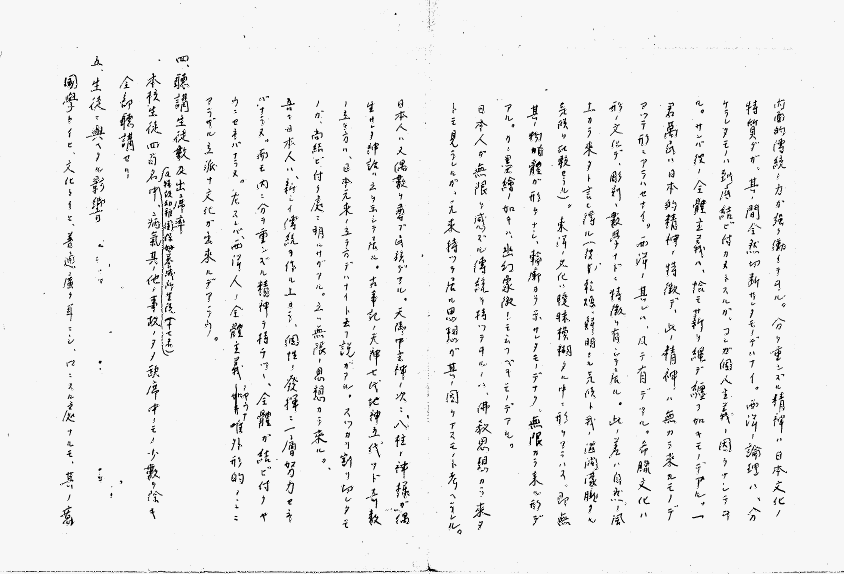 内面的傳統ノ力ガ強ク働イテヰル。分ヲ重ンズル精神ハ日本文化ノ
特質ダガ、其ノ間全然切断サレタモノデハナイ。西洋ノ論理ハ、分
ケラレタモノハ到底結ビ付カヌトスルガ、コレガ個人主義ノ因ヲナシテヰ
ル。サレバ彼ノ全體主義ハ、恰モ薪ヲ縄デ纏フ如キモノデアル。一
君萬民ハ日本的精神ノ特徴デ、此ノ精神ハ無カラ來ルモノデ
アツテ形ニアラハセナイ。西洋ノ其レハ、凡テ有デアル。希臘文化ハ
形ノ文化デ、彫刻、數學ナドニ特徴ヲ有シテ居ル。此ノ差ハ自然ノ風
土カラ來タト言ヒ得ル(彼ガ乾燥鮮明ナル気候ト我ガ濕潤濛朧タル
気候ヲ比較セラル)。東洋ノ文化ハ曖昧模糊タル中ニ形ヲアラハス、即無
其ノ物自體ガ形ヲナシ、輪廓ヨリ示サレタモノデナク、無限カラ來ル形デ
アル。カノ墨繪ノ如キハ、幽幻象徴トモ云フベキモノデアル。
日本人ガ無限ヲ感ズル傳統ヲ持ツテヰルノハ、佛敎思想カラ來タ
トモ見ラレルガ、元來持ツテ居ル思想ガ其ノ因ヲナスモノト考ヘラレル。
日本人ハ又偶數ヲ尊ブ民族デアル。天御中主神ノ次ニ、八柱ノ神様ガ偶
生サレタ神話ハ之ヲ示シテ居ル。古事記ノ天神七代地神五代ナド奇數
ノ立テ方ハ、日本元來ノ立テ方デハナイト云フ説ガアル。スツカリ割リ切レタモ
ノガ、尚結ビ付ク處ニ明ルサガアル。之ハ無限ノ思想カラ來ル。
吾々日本人ハ、新シイ傳統ヲ作ル上カラ、個性ノ發揮ニ一層努力セネ
バナラヌ。而モ内ニ分ヲ重ンズル精神ヲ持テシ、全體ガ結ビ付クヤ
ウニセネバナラヌ。左スレバ西洋人ノ全體主義ノヤウナ唯外形的ノミニ
アラザル立派ナ文化ガ出來ルデアラウ。
四、聽講生徒數及出席率
本校生徒四百名中、病氣其ノ他ノ事故ノタメ缺席中ノモノ少數ヲ除キ
全部聽講セリ
五、生徒ニ與ヘタル影響
國學トイヒ、文化トイヒ、普通廣ク耳ニシ、口ニスル處ナルモ、其ノ真